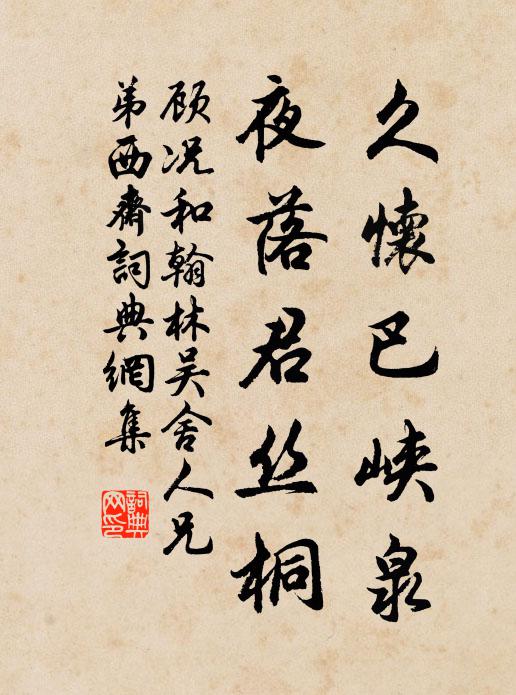 久懷巴峽泉
夜落君丝桐
顾况和翰林吴舍人兄
弟西齋詞典網集
詞典网印